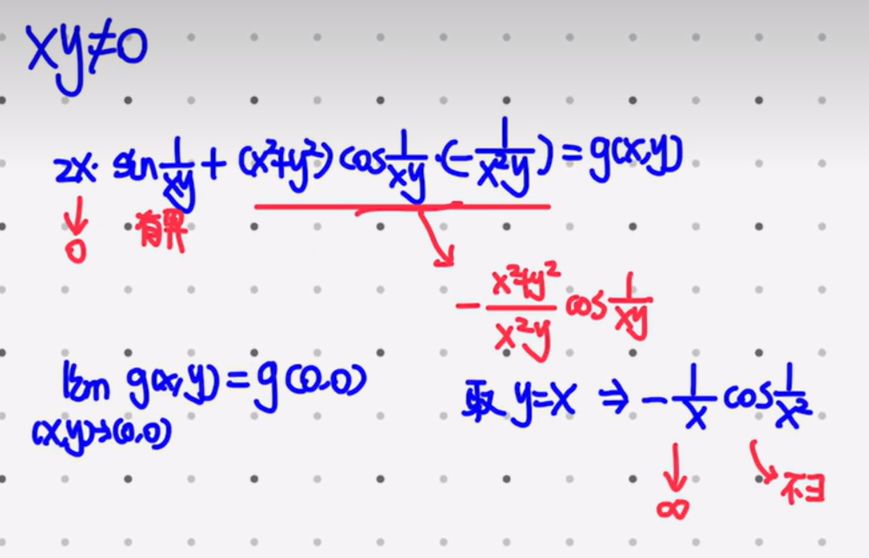 xy≠0
2x· sin 1/xy + (x²+y²) cos 1/xy ·(- 1/x²y) = g(x,y)
↓ 0 有界
- x²+y²/x²y cos 1/xy
lim g(x,y) = g(0,0)
(x,y)→(0,0)
取 y=x ⇒ - 1/x cos 1/x²
↓ ∞ ↘ 不∃